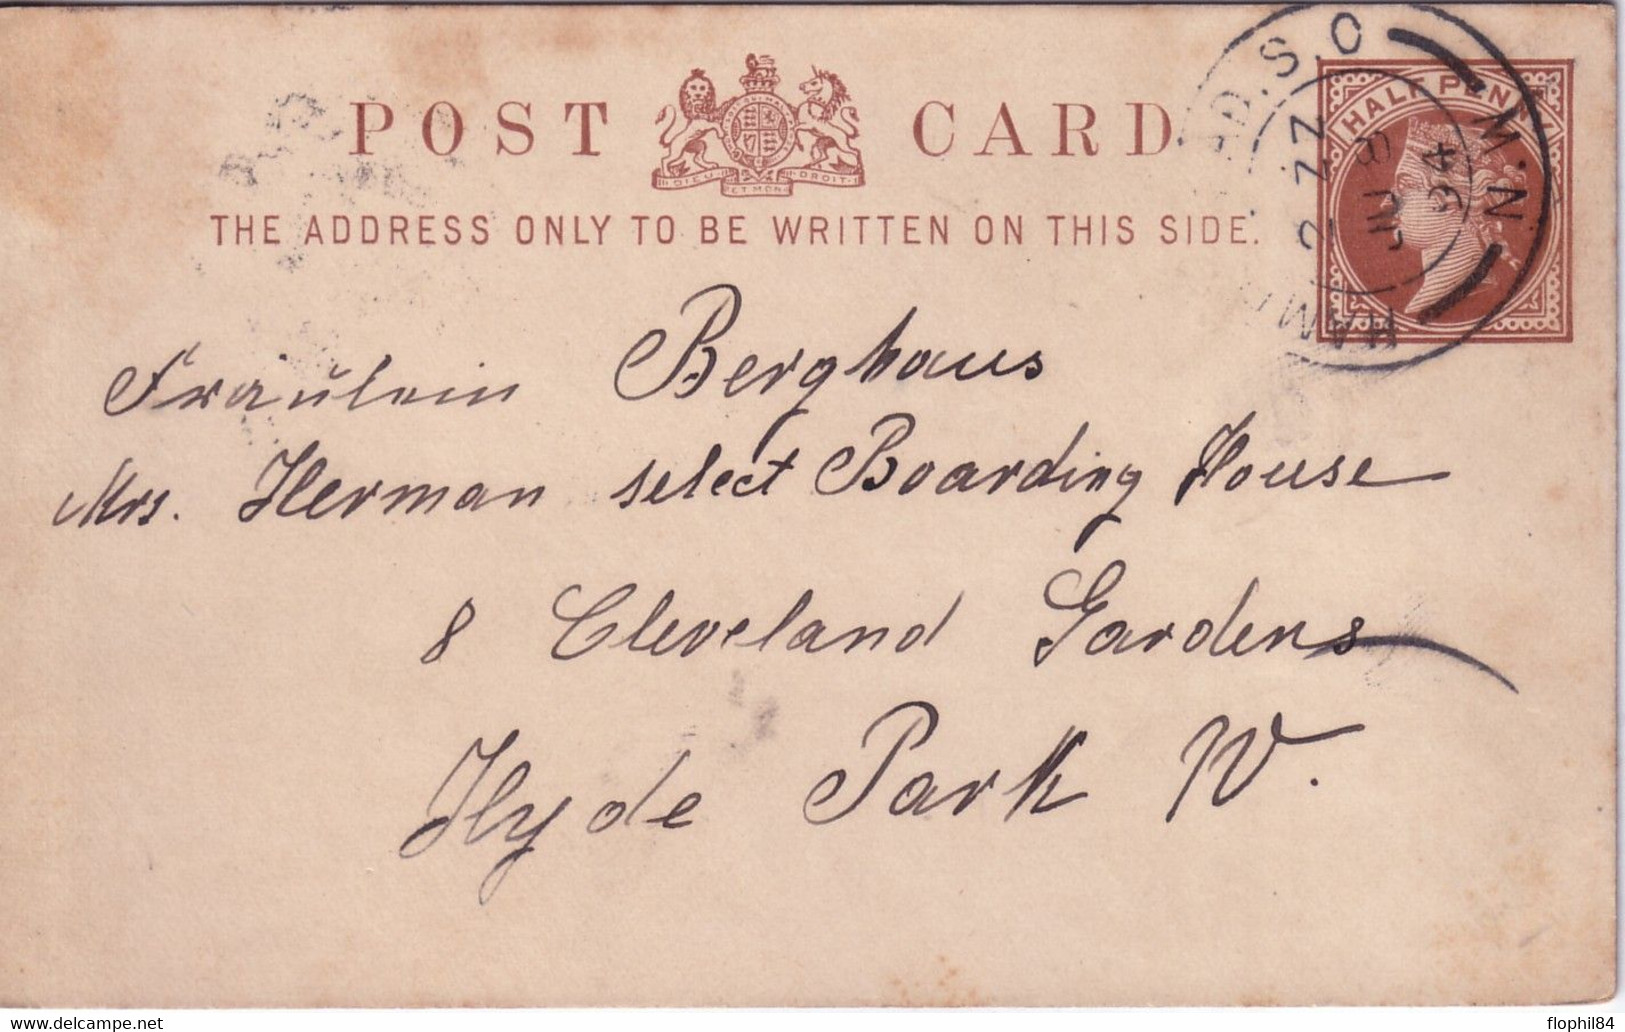 POST CARD
DIEU ET MON DROIT
THE ADDRESS ONLY TO BE WRITTEN ON THIS SIDE.
HALF PENNY
D.S.O
M.N.
2 ZZ
JU 8
94
HAM
Fräulein Berghaus
Mrs. Herman select Boarding House
8 Cleveland Gardens
Hyde Park W.
www.delcampe.net
flophil84